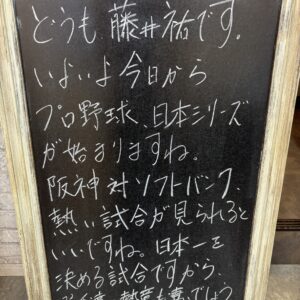 どうも藤井祐です。
いよいよ今日から
プロ野球、日本シリーズ
が始まりますね。
阪神対ソフトバンク、
熱い試合が見られると
いいですね。日本一を
決める試合ですから、